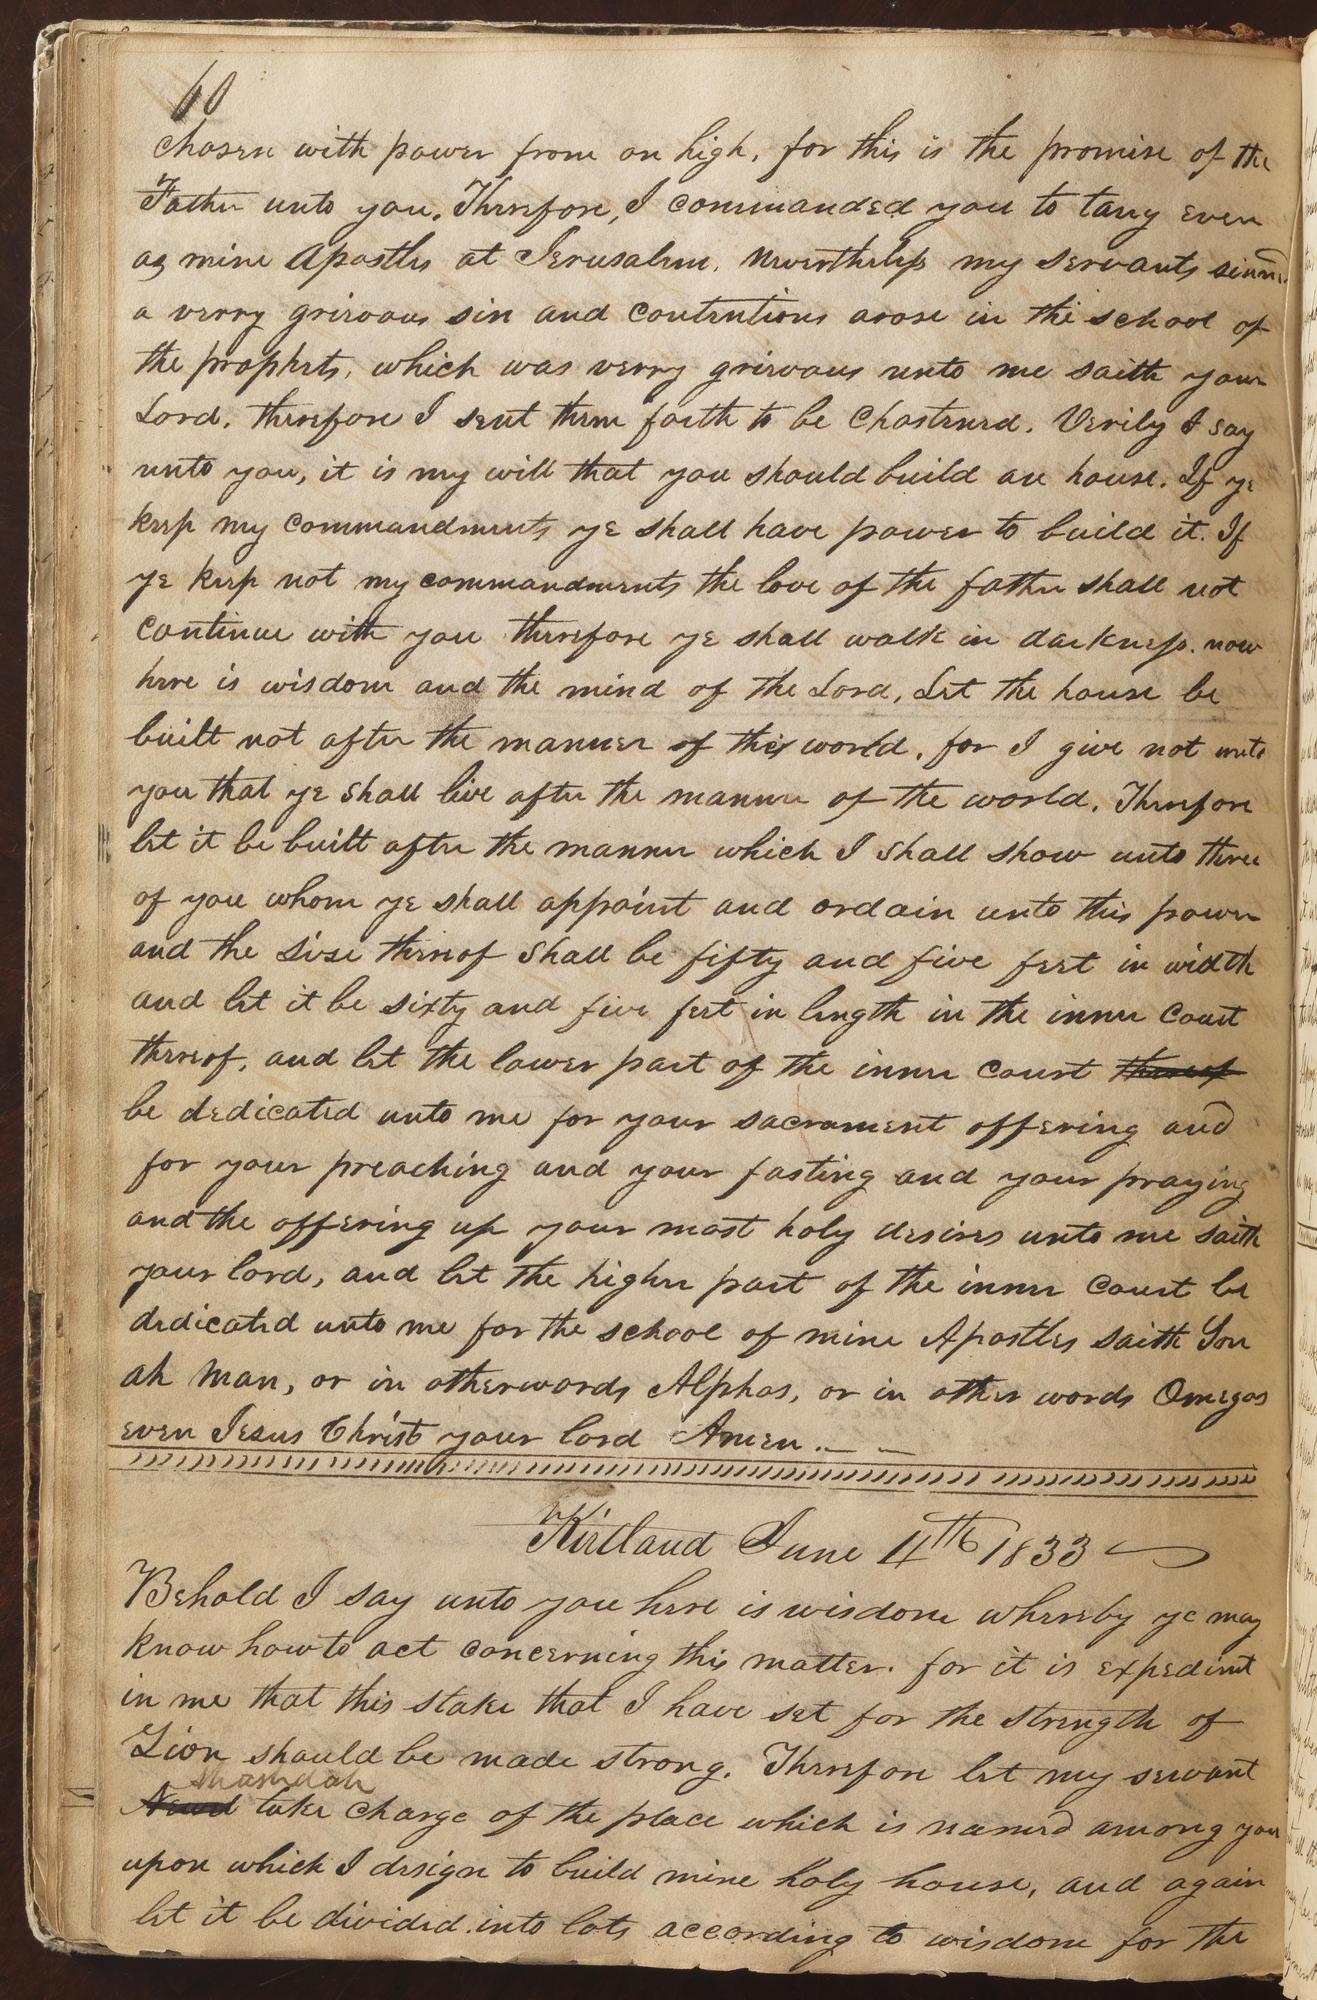 60
chosen with power from on high, for this is the promise of the
Father unto you. Therefore, I commanded you to tarry even
as mine Apostles at Jerusalem. Nevertheless my servants sinned
a verry grievous sin and contentions arose in the school of
the prophets, which was verry grievous unto me saith your
Lord, therefore I sent them forth to be chastened. Verily I say
unto you, it is my will that you should build an house. If ye
keep my commandments ye shall have power to build it. If
ye keep not my commandments the love of the father shall not
continue with you therefore ye shall walk in darkness. now
here is wisdom and the mind of the Lord, Let the house be
built not after the manner of this world, for I give not unto
you that ye shall live after the manner of the world. Therefore
let it be built after the manner which I shall show unto three
of you whom ye shall appoint and ordain unto this power
and the size thereof shall be fifty and five feet in width
and let it be sixty and five feet in length in the inner court
thereof, and let the lower part of the inner court thereof
be dedicated unto me for your sacrament offering and
for your preaching and your fasting and your praying
and the offering up your most holy desires unto me saith
your lord, and let the higher part of the inner court be
dedicated unto me for the school of mine Apostles saith Son
ah Man, or in otherwords Alphas, or in other words Omegas
even Jesus Christ your lord Amen. — —
Kirtland June 4th 1833
Behold I say unto you here is wisdom whereby ye may
know how to act concerning this matter. for it is expedient
in me that this stake that I have set for the strength of
Zion should be made strong. Therefore let my servant
Ahashdah
Newel take charge of the place which is named among you
upon which I design to build mine holy house, and again
let it be divided into lots according to wisdom for the